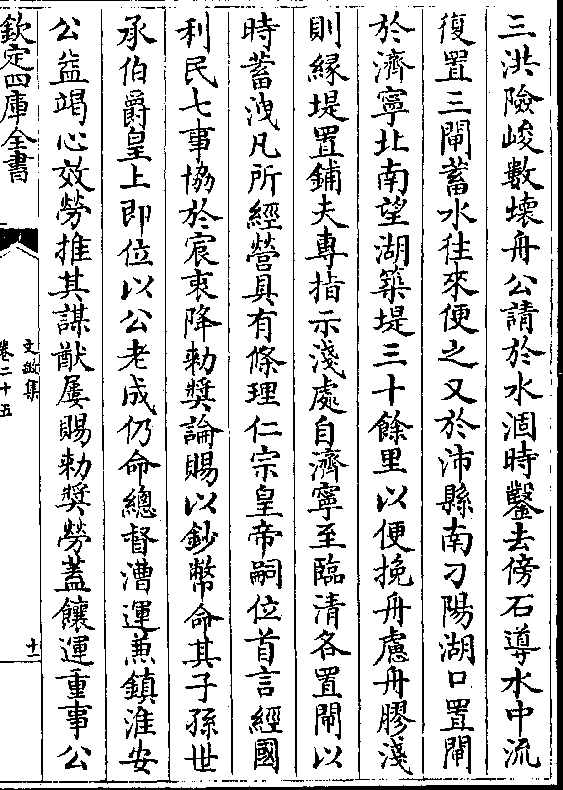 三洪險峻數壊舟公請於水涸時鑿去傍石導水中流
復置三閘蓄水往來便之又於沛縣南刁陽湖口置閘
於濟寧北南望湖築堤三十餘里以便挽舟慮舟膠淺
則縁堤置鋪夫専指示淺處自濟寧至臨清各置閘以
時蓄洩凡所經營具有條理仁宗皇帝嗣位首言經國
利民七事協於宸衷降勅奬諭賜以鈔幣命其子孫世
承伯爵皇上即位以公老成仍命總督漕運兼鎮淮安
公益竭心效勞推其謀猷屢賜勅奬勞蓋饟運重事公
欽定四庫全書
文敏集
卷二十五
十一